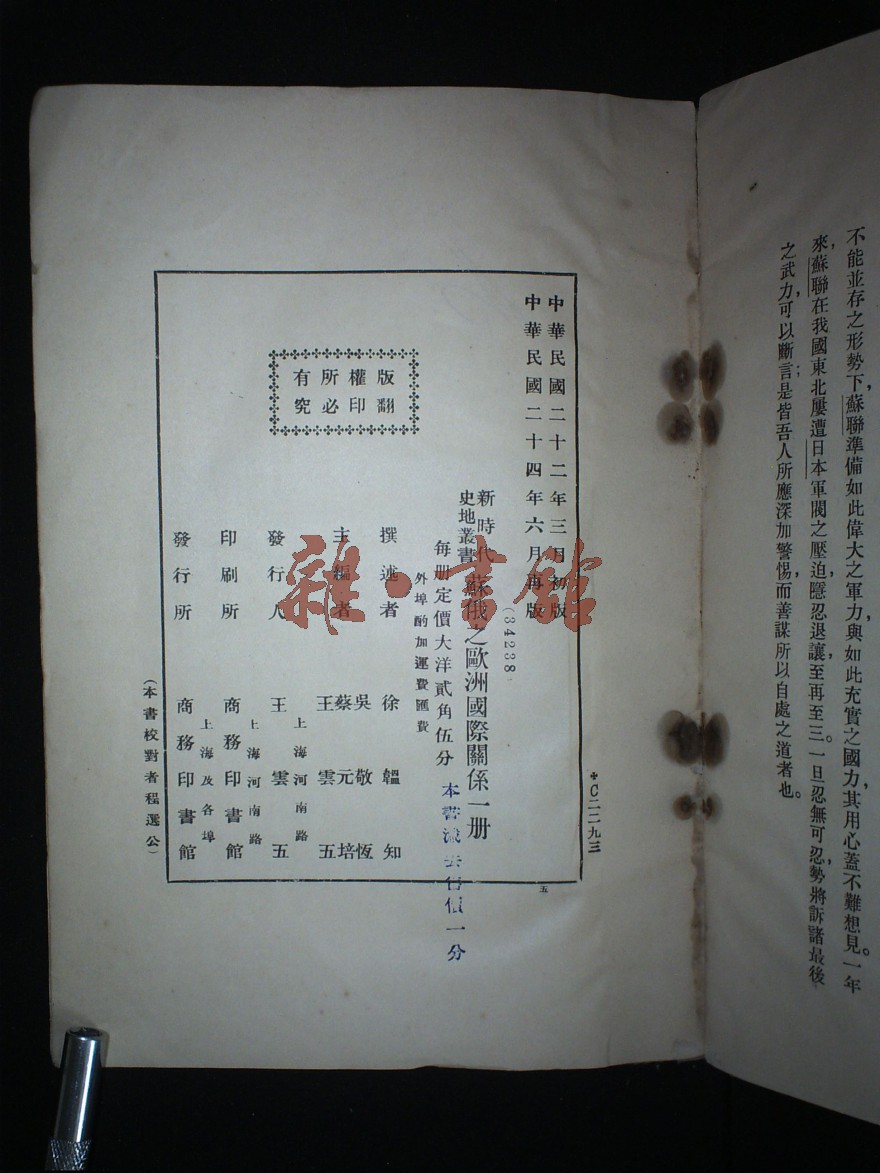 不能並存之形勢下，蘇聯準備如此偉大之軍力與如此充實之國力，其用心蓋不難想見。一年
來，蘇聯在我國東北屢遭日本軍閥之壓迫，隱忍退讓，至再至三。一旦忍無可忍，勢將訴諸最後
之武力，可以斷言；是皆吾人所應深加警惕，而善謀所以自處之道者也。
＊C二二九三
中華民國二十二年三月初版
中華民國二十四年六月再版
(34238)
新時代
史地叢書
蘇俄之歐洲國際關係一册
每册定價大洋貳角伍分
外埠酌加運費匯費
本書
一分
版權所有
翻印必究
撰述者 徐韞知
主編者 吳敬恆
蔡元培
王雲五
發行人 王雲五
上海河南路
印刷所 商務印書館
上海河南路
發行所 商務印書館
上海及各埠
(本書校對者程選公)
五
雜·書館